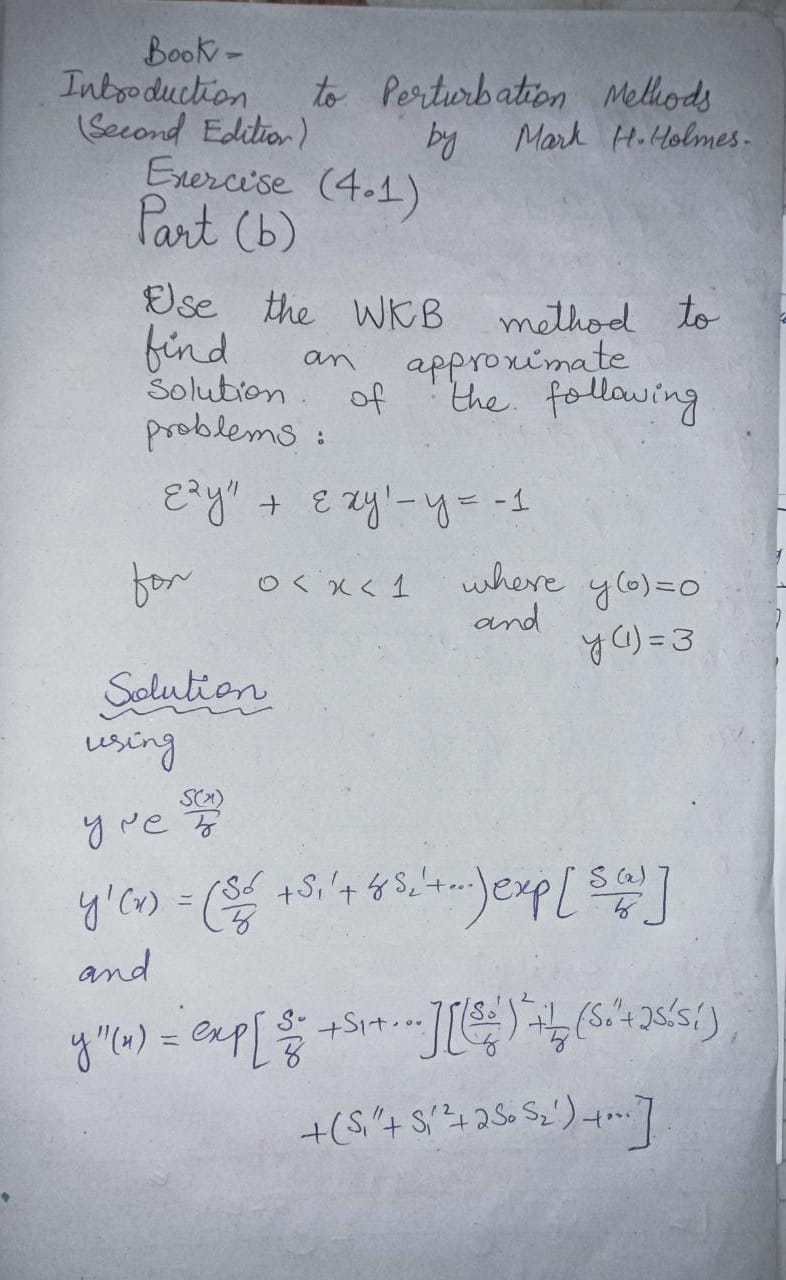 Book -
Introduction to Perturbation Methods
(Second Edition) by Mark H. Holmes.
Exercise (4.1)
Part (b)
Use the WKB method to
find an approximate
solution. of the following
problems :
ε²y" + εxy' - y = -1
for 0 < x < 1 where y(0)=0
and y(1)=3
Solution
using
y ~ e^{S(x)/δ}
y'(x) = (S₀'/δ + S₁' + δS₂' + ...) exp[S(x)/δ]
and
y"(x) = exp[S₀/δ + S₁ + ...][(S₀'/δ)² + 1/δ (S₀" + 2S₀'S₁')
+ (S₁" + S₁'² + 2S₀S₂') + ...]